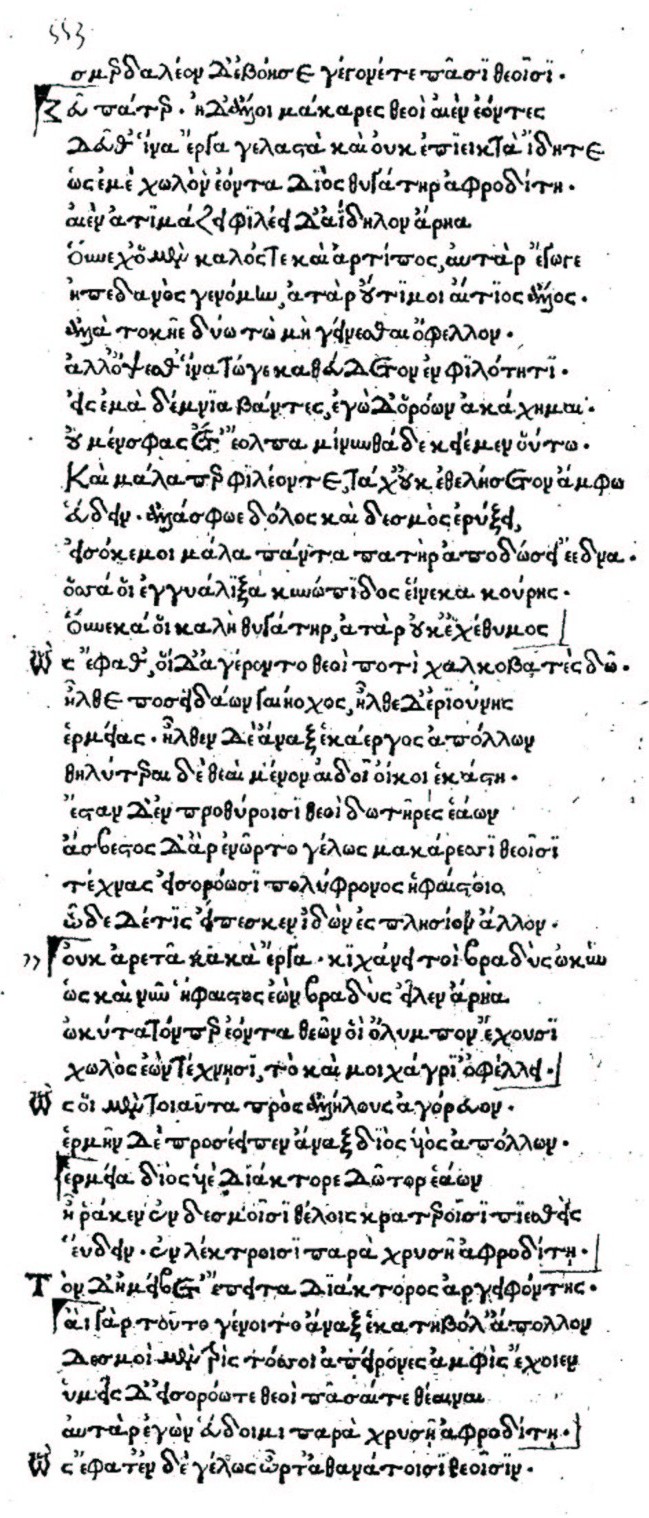 σμερδαλέον δ' ἐβόησε γέγωνέ τε πᾶσι θεοῖσι·
Ζεῦ πάτερ· ἠδ' ἄλλοι μάκαρες θεοὶ αἰὲν ἐόντες
δεῦθ' ἵνα ἔργα γελαστὰ καὶ οὐκ ἐπιεικτὰ ἴδητε
ὡς ἐμὲ χωλὸν ἐόντα διὸς θυγάτηρ ἀφροδίτη·
αἰὲν ἀτιμάζει φιλέει δ' ἀΐδηλον ἄρηα
οὕνεχ' ὁ μὲν καλός τε καὶ ἀρτίπος, αὐτὰρ ἔγωγε
ἠπεδανὸς γενόμην, ἀτὰρ οὔτι μοι αἴτιος ἄλλος·
ἀλλὰ τοκῆε δύω τὼ μὴ γείνεσθαι ὄφελλον·
ἀλλ' ὄψεσθ' ἵνα τώγε καθεύδετον ἐν φιλότητι·
εἰς ἐμὰ δέμνια βάντες, ἐγὼ δ' ὁρόων ἀκάχημαι·
οὐ μέν σφας ἔτ' ἔολπα μίνυνθά δε κειέμεν οὕτω·
καὶ μάλα περ φιλέοντε, τάχ' οὐκ ἐθελήσετον ἄμφω
εὕδειν· ἀλλά σφωε δόλος καὶ δεσμὸς ἐρύξει,
εἰσόκε μοι μάλα πάντα πατὴρ ἀποδώσει ἔεδνα·
ὅσσά οἱ ἐγγυάλιξα κυνώπιδος εἵνεκα κούρης·
οὕνεκά οἱ καλὴ θυγάτηρ, ἀτὰρ οὐκ ἐχέθυμος
Ὣς ἔφαθ', οἱ δ' ἀγέροντο θεοὶ ποτὶ χαλκοβατὲς δῶ·
ἦλθε ποσειδάων γαιήοχος, ἦλθε δ' ἐριούνης
ἑρμείας· ἦλθεν δὲ ἄναξ ἑκάεργος ἀπόλλων
θηλύτεραι δὲ θεαὶ μένον αἰδοῖ οἴκοι ἑκάστη·
ἔσταν δ' ἐν προθύροισι θεοὶ δωτῆρες ἑάων
ἄσβεστος δ' ἄρ' ἐνῶρτο γέλως μακάρεσσι θεοῖσι
τέχνας εἰσορόωσι πολύφρονος ἡφαίστοιο
ὧδε δέ τις εἴπεσκεν ἰδὼν ἐς πλησίον ἄλλον·
οὐκ ἀρετᾶ κακὰ ἔργα· κιχάνει τοι βραδὺς ὠκὺν
ὡς καὶ νῦν ἥφαιστος ἐὼν βραδὺς εἷλεν ἄρηα
ὠκύτατόν περ ἐόντα θεῶν οἳ ὄλυμπον ἔχουσι
χωλὸς ἐὼν τέχνησι, τὸ καὶ μοιχάγρι' ὀφέλλει·
Ὣς οἱ μὲν τοιαῦτα πρὸς ἀλλήλους ἀγόρευον·
ἑρμῆν δὲ προσέειπεν ἄναξ διὸς υἱὸς ἀπόλλων·
ἑρμεία διὸς υἱὲ διάκτορε δῶτορ ἑάων
ἦ ῥά κεν ἐν δεσμοῖσι θέλοις κρατεροῖσι πιεσθεὶς
εὕδειν· ἐν λέκτροισι παρὰ χρυσῆ ἀφροδίτη·
Τὸν δ' ἠμείβετ' ἔπειτα διάκτορος ἀργειφόντης·
αἲ γὰρ τοῦτο γένοιτο ἄναξ ἑκατηβόλ' ἄπολλον
δεσμοὶ μὲν τρὶς τόσσοι ἀπείρονες ἀμφὶς ἔχοιεν
ὑμεῖς δ' εἰσορόωτε θεοὶ πᾶσαί τε θέαιναι
αὐτὰρ ἐγὼν εὕδοιμι παρὰ χρυσῆ ἀφροδίτη·
Ὣς ἔφατ' ἐν δὲ γέλως ὦρτ' ἀθανάτοισι θεοῖσιν·